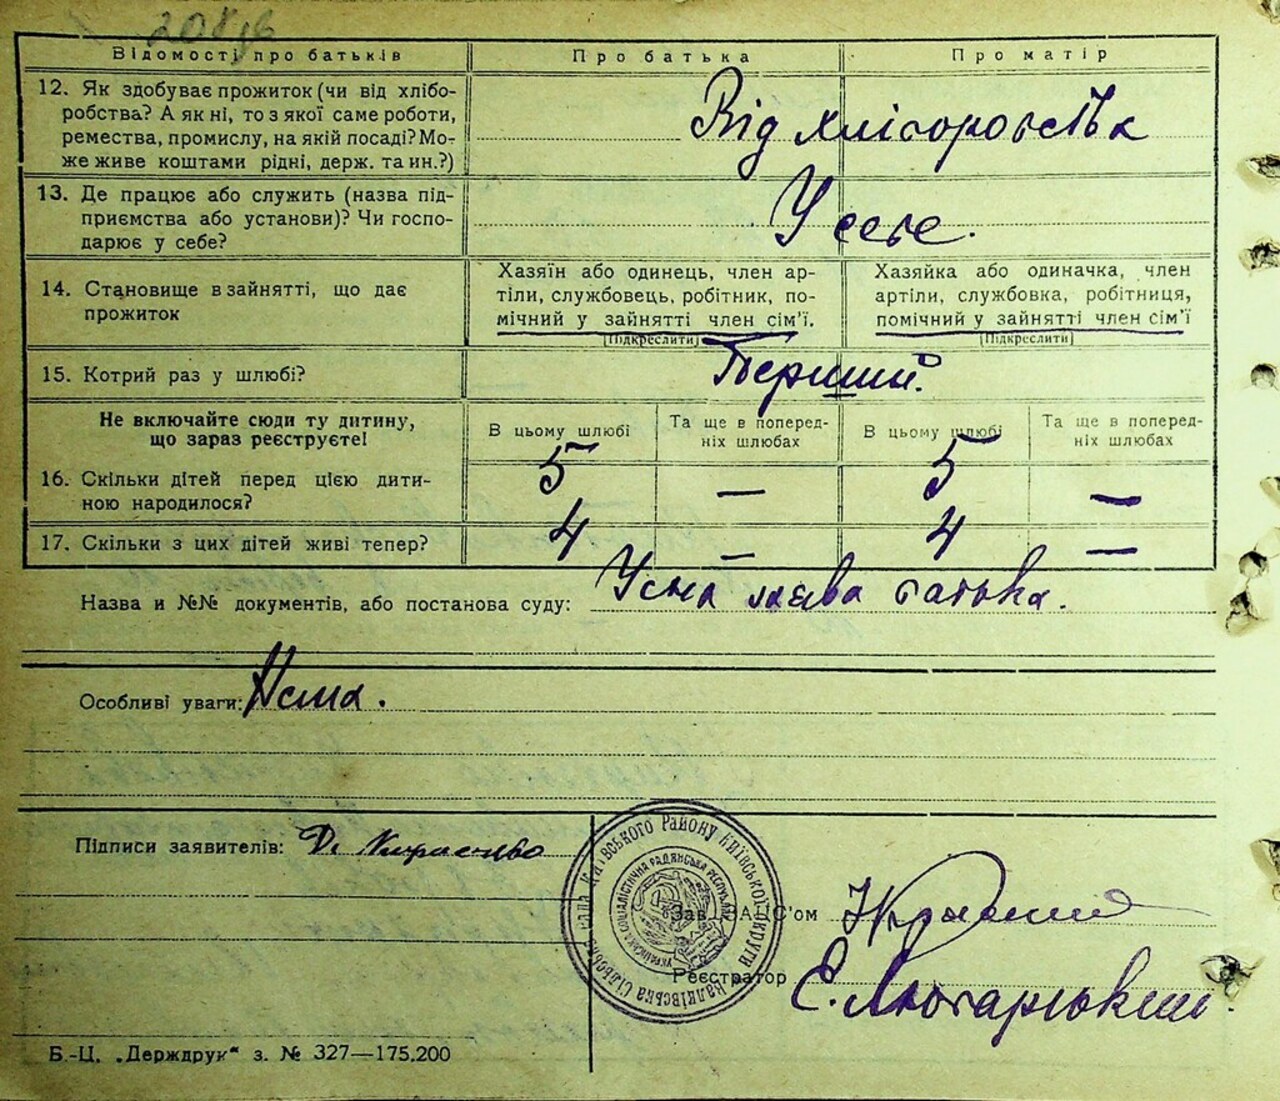 Відомості про батьків
Про батька
Про матір
12. Як здобуває прожиток (чи від хлібо-
робства? А як ні, то з якої саме роботи,
ремества, промислу, на якій посаді? Мо-
же живе коштами рідні, держ. та ин.?)
Від хліборобства
13. Де працює або служить (назва під-
приємства або установи)? Чи госпо-
дарює у себе?
У себе.
14. Становище в зайнятті, що дає
прожиток
Хазяїн або одинець, член ар-
тіли, службовець, робітник, по-
мічний у зайнятті член сім'ї.
[Підкреслити]
Хазяйка або одиначка, член
артіли, службовка, робітниця,
помічний у зайнятті член сім'ї
[Підкреслити]
15. Котрий раз у шлюбі?
Перший.
Не включайте сюди ту дитину,
що зараз реєструєте!
В цьому шлюбі
Та ще в поперед-
ніх шлюбах
В цьому шлюбі
Та ще в поперед-
ніх шлюбах
16. Скільки дітей перед цією дити-
ною народилося?
5 — 5 —
17. Скільки з цих дітей живі тепер?
4 — 4 —
Назва и №№ документів, або постанова суду: Усна заява батька.
Особливі уваги: Нема.
Підписи заявителів: Д.
Зав. ЗАГС'ом
Реєстратор Є.
Сільська Рада Київського Району Київської Округи
Українська Соціалістична Радянська Республіка
Б.-Ц. „Держдрук“ з. № 327—175.200